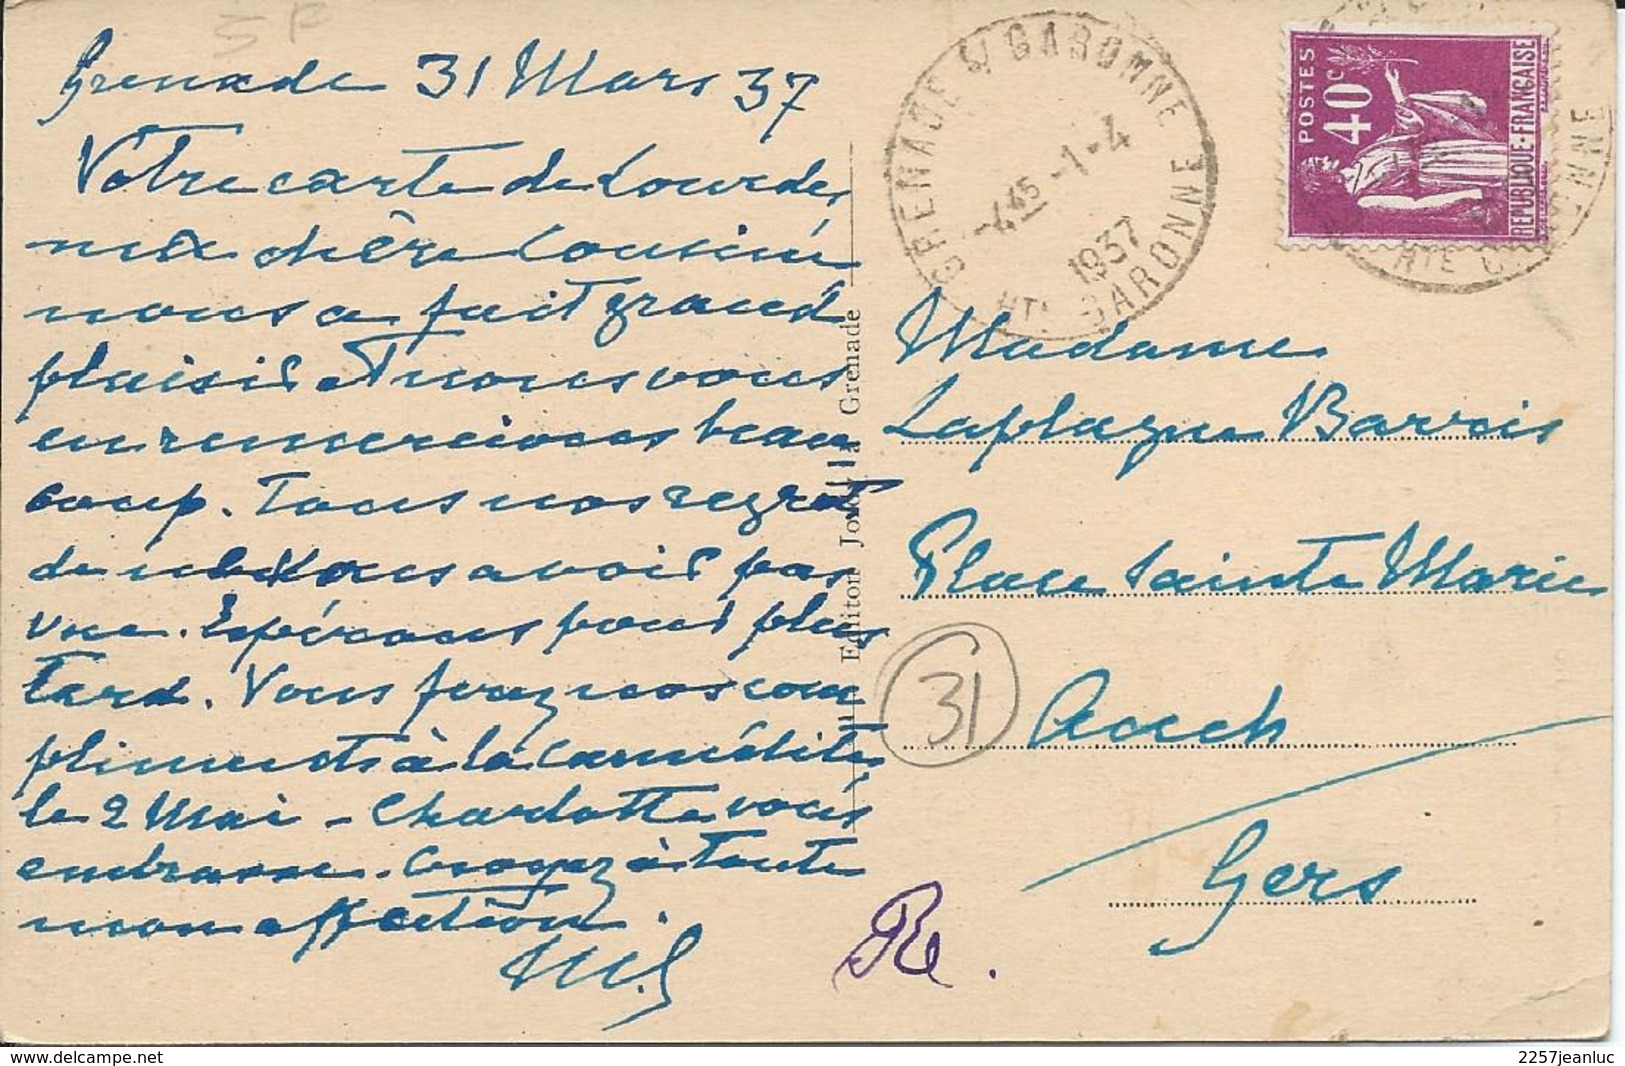 5 F
Grenade 31 Mars 37
Votre carte de Lourdes
ma chère cousine
nous a fait grand
plaisir et nous vous
en remercions beau
coup. Tous nos regrets
de ne vous avoir pas
vue. Espérons pour plus
tard. Vous ferez nos com
pliments à la carmélite
le 2 Mai - Charlotte vous
embrasse. Croyez à toute
mon affection.
Editon Jour la Grenade
GRENADE S/ GARONNE
-4 45 -1-4
1937
HTE GARONNE
POSTES
40c
REPUBLIQUE-FRANÇAISE
HTE GARONNE
Madame
Laplagne Barris
Place Sainte Marie
31
Auch
Gers
Re.
2257jeanluc